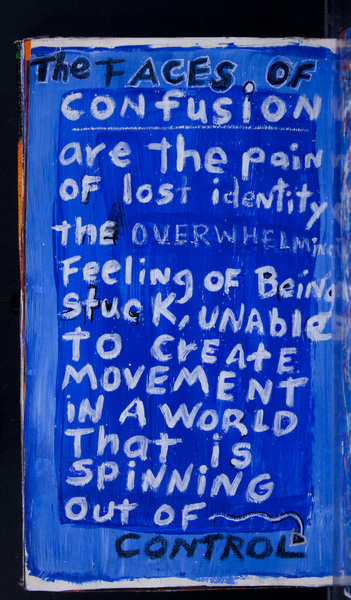 The FACES. OF
CONfusiON
are the pain
OF lost identity
the OVERWHELMING
Feeling OF BeiNg
stucK, UNABle
TO CreAtE
MOVEMENT
iN A WORLD
That is
SPiNNiNG
OUT OF
CONTROL